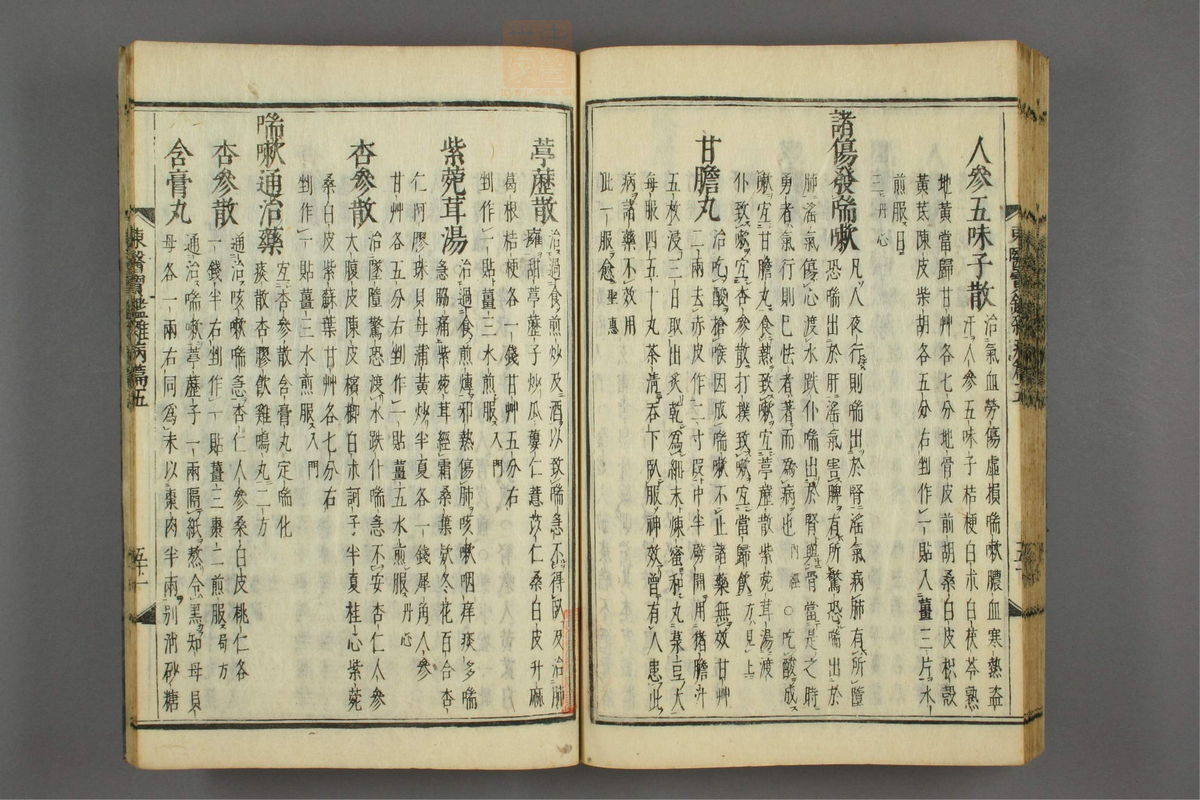 人參五味子散 治氣血勞傷虛損喘嗽膿血寒熱盜
汗人參五味子桔梗白朮白茯苓熟
地黃當歸甘艸各七分地骨皮前胡桑白皮枳殼
黃芪陳皮柴胡各五分右剉作一貼入薑三片水
煎服日
三丹心
諸傷發喘嗽 凡人夜行則喘出於腎淫氣病肺有所墮
恐喘出於肝淫氣害脾有所驚恐喘出於
肺淫氣傷心渡水跌仆喘出於腎與骨當是之時
勇者氣行則已怯者著而爲病也內經○吃酸成
嗽宜甘膽丸食熱致嗽宜葶藶散紫菀茸湯渡
仆致嗽宜杏參散打撲致嗽宜當歸飮方見上
甘膽丸 治吃酸搶喉因成喘嗽不止諸藥無效甘艸
二寸去赤皮作二寸段中半劈開用猪膽汁
五枚浸三日取出炙乾爲細末煉蜜和丸菉豆大
每服四五十丸茶淸呑下臥服神效曾有人患此
病諸藥不效用
此一服愈聖惠
葶藶散 治過食煎炒及酒以致喘急不得臥及治肺
癰甜葶藶子炒瓜蔞仁薏苡仁桑白皮升麻
葛根桔梗各一錢甘艸五分右
剉作一貼薑三水煎服入門
紫菀茸湯 治過食煎煿邪熱傷肺咳嗽咽痒痰多喘
急脇痛紫菀茸經霜桑葉款冬花百合杏
仁阿膠珠貝母蒲黃炒半夏各一錢犀角人參
甘艸各五分右剉作一貼薑五水煎服丹心
杏參散 治墜墮驚恐渡水跌仆喘急不安杏仁人參
大腹皮陳皮檳榔白朮訶子半夏桂心紫菀
桑白皮紫蘇葉甘艸各七分右
剉作一貼薑三水煎服入門
喘嗽通治藥 宜杏參散含膏丸定喘化
痰散杏膠飮雞鳴丸二方
杏參散 通治咳嗽喘急杏仁人參桑白皮桃仁各
一錢半右剉作一貼薑三棗二煎服局方
含膏丸 通治喘嗽葶藶子一兩隔紙熬令黑知母貝
母各一兩右同爲末以棗肉半兩別消砂糖
東醫寶鑑雜病篇五
五十一